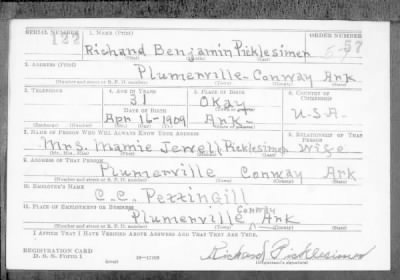 SERIAL NUMBER 1. NAME (Print) ORDER NUMBER
122 Richard Benjamin Picklesimer 57
(First) (Middle) (Last)
2. ADDRESS (Print)
Plumerville - Conway Ark
(Number and street or R. F. D. number) (Town) (County) (State)
3. TELEPHONE 4. AGE IN YEARS 5. PLACE OF BIRTH 6. COUNTRY OF CITIZENSHIP
31 Okay
DATE OF BIRTH (Town or county)
Apr 16-1909 Ark- U-S-A-
(Mo.) (Day) (Yr.) (State or country)
7. NAME OF PERSON WHO WILL ALWAYS KNOW YOUR ADDRESS 8. RELATIONSHIP OF THAT PERSON
Mrs. Mamie Jewell Picklesimer Wife
(Mr., Mrs., Miss) (First) (Middle) (Last)
9. ADDRESS OF THAT PERSON
Plumerville Conway Ark
(Number and street or R. F. D. number) (Town) (County) (State)
10. EMPLOYER'S NAME
C. C. Pettingill
11. PLACE OF EMPLOYMENT OR BUSINESS
Plumerville Conway Ark
(Number and street or R. F. D. number) (Town) (County) (State)
I AFFIRM THAT I HAVE VERIFIED ABOVE ANSWERS AND THAT THEY ARE TRUE.
REGISTRATION CARD
D. S. S. Form 1 Richard Picklesimer
(Registrant's signature)